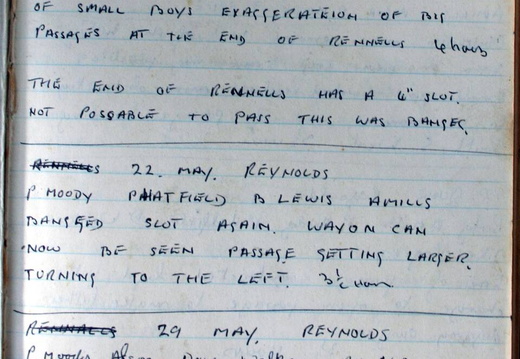 OF SMALL BOYS EXAGGERATEION OF BIG
PASSAGES AT THE END OF RENNELLS 4 hours
THE END OF RENNELLS HAS A 4" SLOT.
NOT POSSABLE TO PASS THIS WAS BANGED,
RENNELLS 22. MAY. REYNOLDS
P MOODY P HATFIELD B LEWIS A MILLS
BANGED SLOT AGAIN. WAY ON CAN
NOW BE SEEN PASSAGE GETTING LARGER.
TURNING TO THE LEFT. 3½ hours
29 MAY. REYNOLDS
P Moody